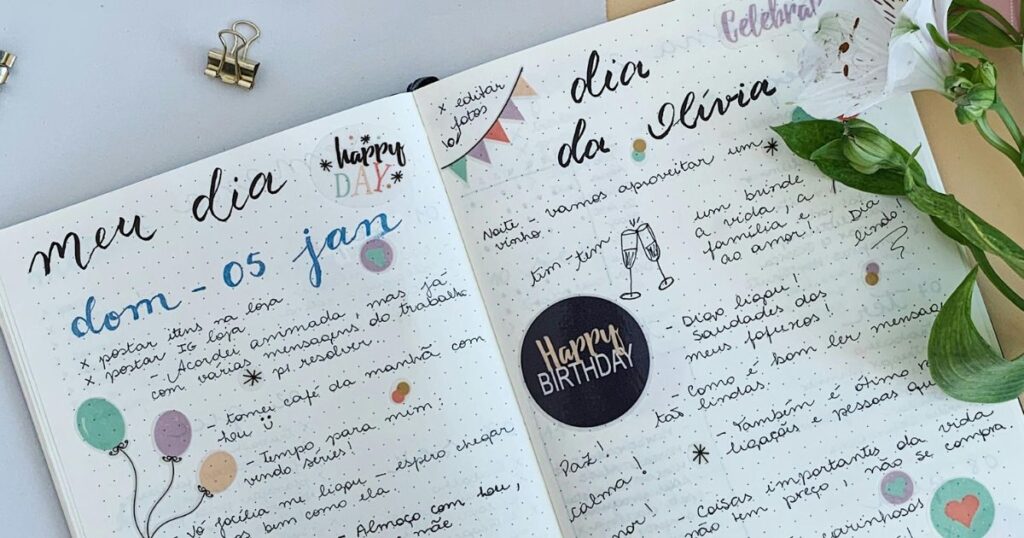 meu dia
happy
DAY.
dom - 05 jan
x postar itens na loja
x postar IG loja
- Acordei animada, mas já
com várias mensagens do trabalho
p/ resolver..
- tomei café da manhã com
- Tempo para mim:
vendo séries!
Vó Jocília me ligou - espero chegar
bem como ela.
- Almoço com
mãe
x editar
fotos
Celebra
dia
da Olívia
Noite - vamos aproveitar um
vinho..
tim-tim
um brinde
a vida, a
família e
ao amor!
Dia
lindo!
Happy
BIRTHDAY
- Digo ligou!
Saudades dos
meus fofuxos!
- Como é bom ler mensagens
tão lindas.
- Também é ótimo
ligações e pessoas que
Paz!
calma!
- Coisas importantes da vida
não tem preço, não se compra
carinhosos